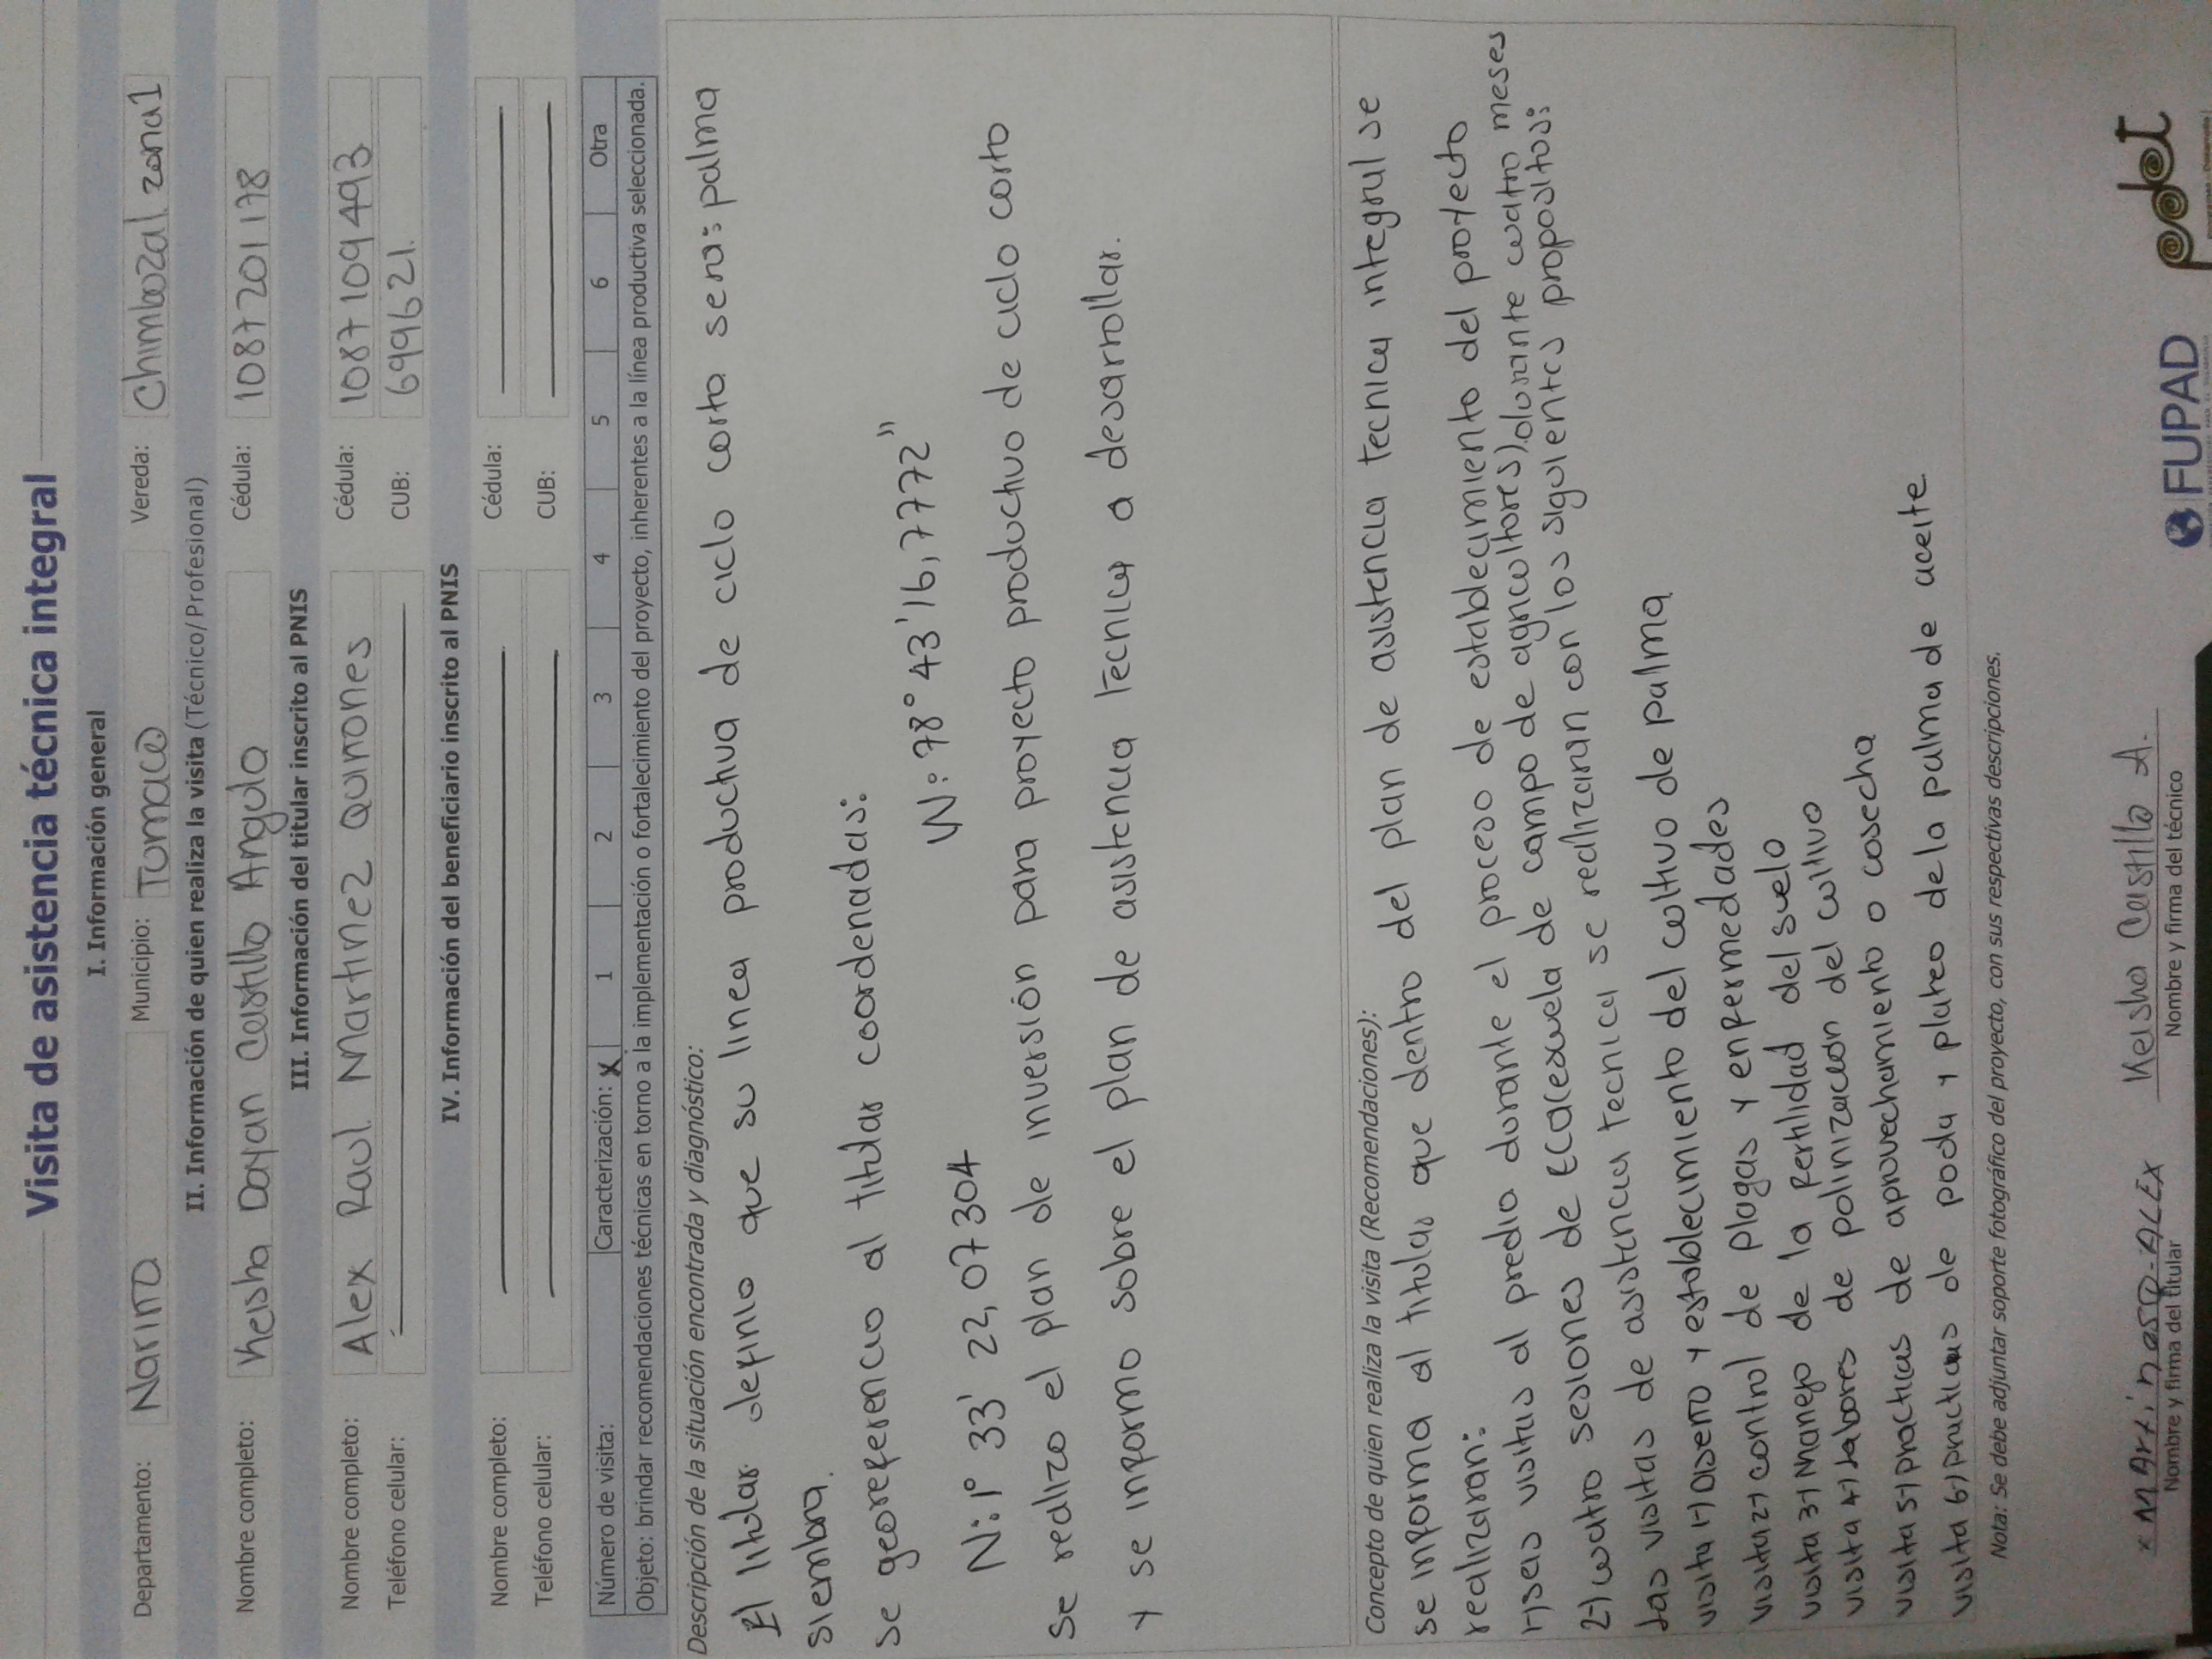 Visita de asistencia técnica integral
I. Información general
Departamento: Nariño Municipio: Tumaco Vereda: Chimbozal zona 1
II. Información de quien realiza la visita (Técnico/Profesional)
Nombre completo: Keisha Dayan Castillo Angulo Cédula: 1087201178
III. Información del titular inscrito al PNIS
Nombre completo: Alex Raul Martinez Quiñones Cédula: 1087109493
Teléfono celular: CUB: 6999621.
IV. Información del beneficiario inscrito al PNIS
Nombre completo: Cédula:
Teléfono celular: CUB:
Número de visita: Caracterización: X 1 2 3 4 5 6 Otra
Objeto: brindar recomendaciones técnicas en torno a la implementación o fortalecimiento del proyecto, inherentes a la línea productiva seleccionada.
Descripción de la situación encontrada y diagnóstico:
El titular definio que su linea productiva de ciclo corto sera: palma
siembra.
se georeferencio al titular coordenadas:
N: 1° 33' 22,07304 W: 78° 43' 16,7772"
se realizo el plan de inversión para proyecto productivo de ciclo corto
y se informo sobre el plan de asistencia tecnica a desarrollar.
Concepto de quien realiza la visita (Recomendaciones):
se informa al titular que dentro del plan de asistencia tecnica integral se
realizaran:
1-) seis visitas al predio durante el proceso de establecimiento del proyecto
2-) cuatro sesiones de ECA(escuela de campo de agricultores), durante cuatro meses
las visitas de asistencia tecnica se realizaran con los siguientes propositos:
visita 1-) Diseño y establecimiento del cultivo de palma
visita 2-) control de plagas y enfermedades
visita 3-) Manejo de la fertilidad del suelo
visita 4-) labores de polinización del cultivo
visita 5-) practicas de aprovechamiento o cosecha
visita 6-) practicas de poda y plateo de la palma de aceite
Nota: Se debe adjuntar soporte fotográfico del proyecto, con sus respectivas descripciones.
Keisha Castillo A.
Nombre y firma del titular Nombre y firma del técnico
FUPAD pdet